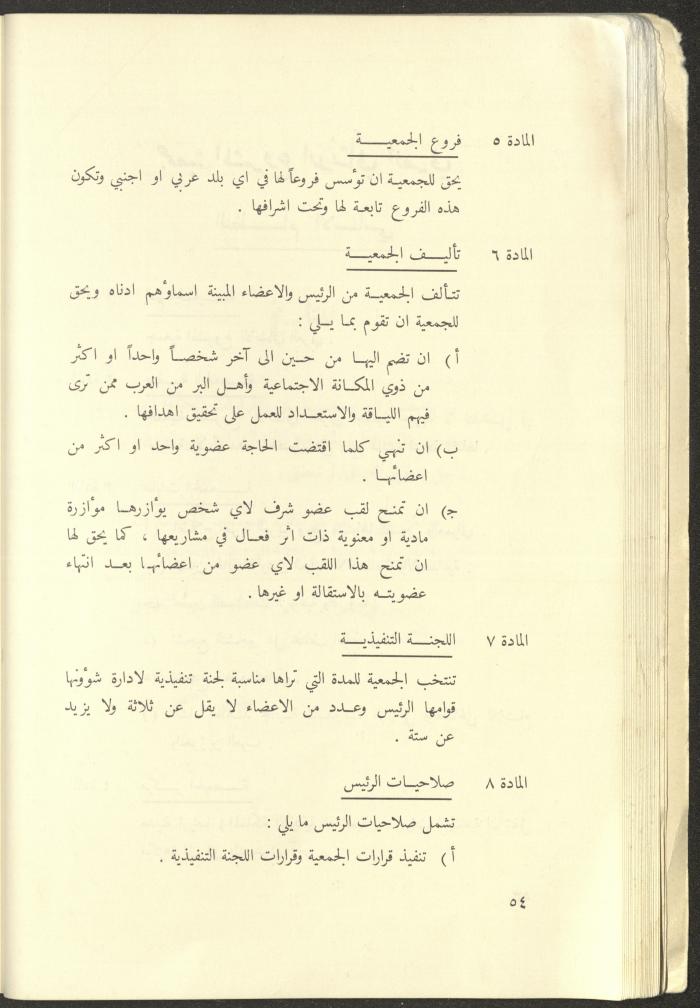 المادة ٥ فروع الجمعيـــــة
يحق للجمعية ان تؤسس فروعاً لها في اي بلد عربي او اجنبي وتكون
هذه الفروع تابعة لها وتحت اشرافها .
المادة ٦ تأليـــف الجمعيـــة
تتألف الجمعيـة من الرئيس والاعضاء المبينة اسماؤهم ادناه ويحق
للجمعية ان تقوم بمـا يـــلي :
أ ) ان تضم اليهـا من حـين الى آخر شخصـاً واحداً او اكثر
من ذوي المكـانة الاجتماعية وأهـل البر من العرب ممن ترى
فيهم اللياقة والاستعـداد للعمل على تحقيق اهدافها .
ب) ان تنهي كلما اقتضت الحاجة عضوية واحد او اكثر من
اعضائهـا .
ج) ان تمنـح لقب عضو شرف لاي شخص يؤازرهـا مؤازرة
مادية او معنوية ذات اثر فعـال في مشاريعها ، كما يحق لها
ان تمنح هذا اللقب لاي عضو من اعضائهـا بعـد انتهاء
عضويتـه بالاستقالة او غيرها .
المادة ٧ اللجنـــة التنفيذيـــة
تنتخب الجمعية للمدة التي تراها مناسبة لجنة تنفيذية لادارة شؤونها
قوامها الرئيس وعـدد من الاعضاء لا يقل عن ثلاثة ولا يزيد
عن ستة .
المادة ٨ صلاحيـات الرئيس
تشمل صلاحيات الرئيس ما يلي :
أ ) تنفيذ قرارات الجمعية وقرارات اللجنة التنفيذية .
٥٤